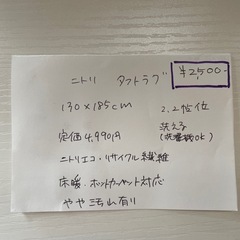 ニトリ タフトラグ
¥2,500.
130×185cm 2.2帖位
定価4,990円
洗える
(洗濯機OK)
ニトリエコ・リサイクル繊維
床暖・ホットカーペット対応
やや汚れ有り